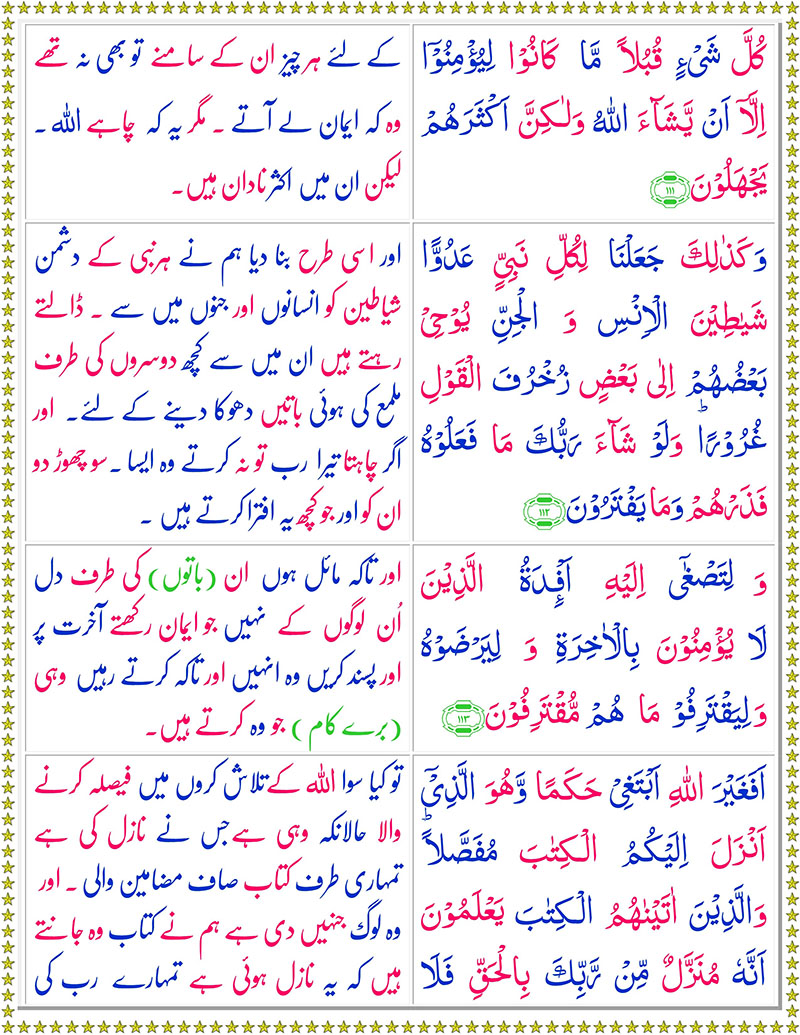 كُلَّ شَیْءٍ قُبُلاً مَّا كَانُوْا لِیُؤْمِنُوْۤا
اِلَّاۤ اَنْ یَّشَآءَ اللهُ وَلٰكِنَّ اَكْثَرَهُمْ
یَجْهَلُوْنَ ﴿۱۱۱﴾
کے لئے ہر چیز ان کے سامنے تو بھی نہ تھے
وہ کہ ایمان لے آتے ۔ مگر یہ کہ چاہے اللہ ۔
لیکن ان میں اکثر نادان ہیں۔
وَكَذٰلِكَ جَعَلْنَا لِكُلِّ نَبِیٍّ عَدُوًّا
شَیٰطِیْنَ الْاِنْسِ وَ الْجِنِّ یُوْحِیْ
بَعْضُهُمْ اِلٰی بَعْضٍ زُخْرُفَ الْقَوْلِ
غُرُوْرًا ؕ وَلَوْ شَآءَ رَبُّكَ مَا فَعَلُوْهُ
فَذَرْهُمْ وَمَا یَفْتَرُوْنَ ﴿۱۱۲﴾
اور اسی طرح بنا دیا ہم نے ہر نبی کے دشمن
شیاطین کو انسانوں اور جنوں میں سے ۔ ڈالتے
رہتے ہیں ان میں سے کچھ دوسروں کی طرف
ملمع کی ہوئی باتیں دھوکا دینے کے لئے۔ اور
اگر چاہتا تیرا رب تو نہ کرتے وہ ایسا ۔ سو چھوڑ دو
ان کو اور جو کچھ یہ افترا کرتے ہیں ۔
وَ لِتَصْغٰۤی اِلَیْهِ اَفْـِٕدَةُ الَّذِیْنَ
لَا یُؤْمِنُوْنَ بِالْاٰخِرَةِ وَ لِیَرْضَوْهُ
وَلِیَقْتَرِفُوْا مَا هُمْ مُّقْتَرِفُوْنَ ﴿۱۱۳﴾
اور تاکہ مائل ہوں ان (باتوں) کی طرف دل
اُن لوگوں کے نہیں جو ایمان رکھتے آخرت پر
اور پسند کریں وہ انہیں اور تاکہ کرتے رہیں وہی
(برے کام ) جو وہ کرتے ہیں۔
اَفَغَیْرَ اللهِ اَبْتَغِیْ حَكَمًا وَّهُوَ الَّذِیْۤ
اَنْزَلَ اِلَیْكُمُ الْكِتٰبَ مُفَصَّلاً ؕ
وَالَّذِیْنَ اٰتَیْنٰهُمُ الْكِتٰبَ یَعْلَمُوْنَ
اَنَّهٗ مُنَزَّلٌ مِّنْ رَّبِّكَ بِالْحَقِّ فَلَا
تو کیا سوا اللہ کے تلاش کروں میں فیصلہ کرنے
والا حالانکہ وہی ہے جس نے نازل کی ہے
تمہاری طرف کتاب صاف مضامین والی ۔ اور
وہ لوگ جنہیں دی ہے ہم نے کتاب وہ جانتے
ہیں کہ یہ نازل ہوئی ہے تمہارے رب کی